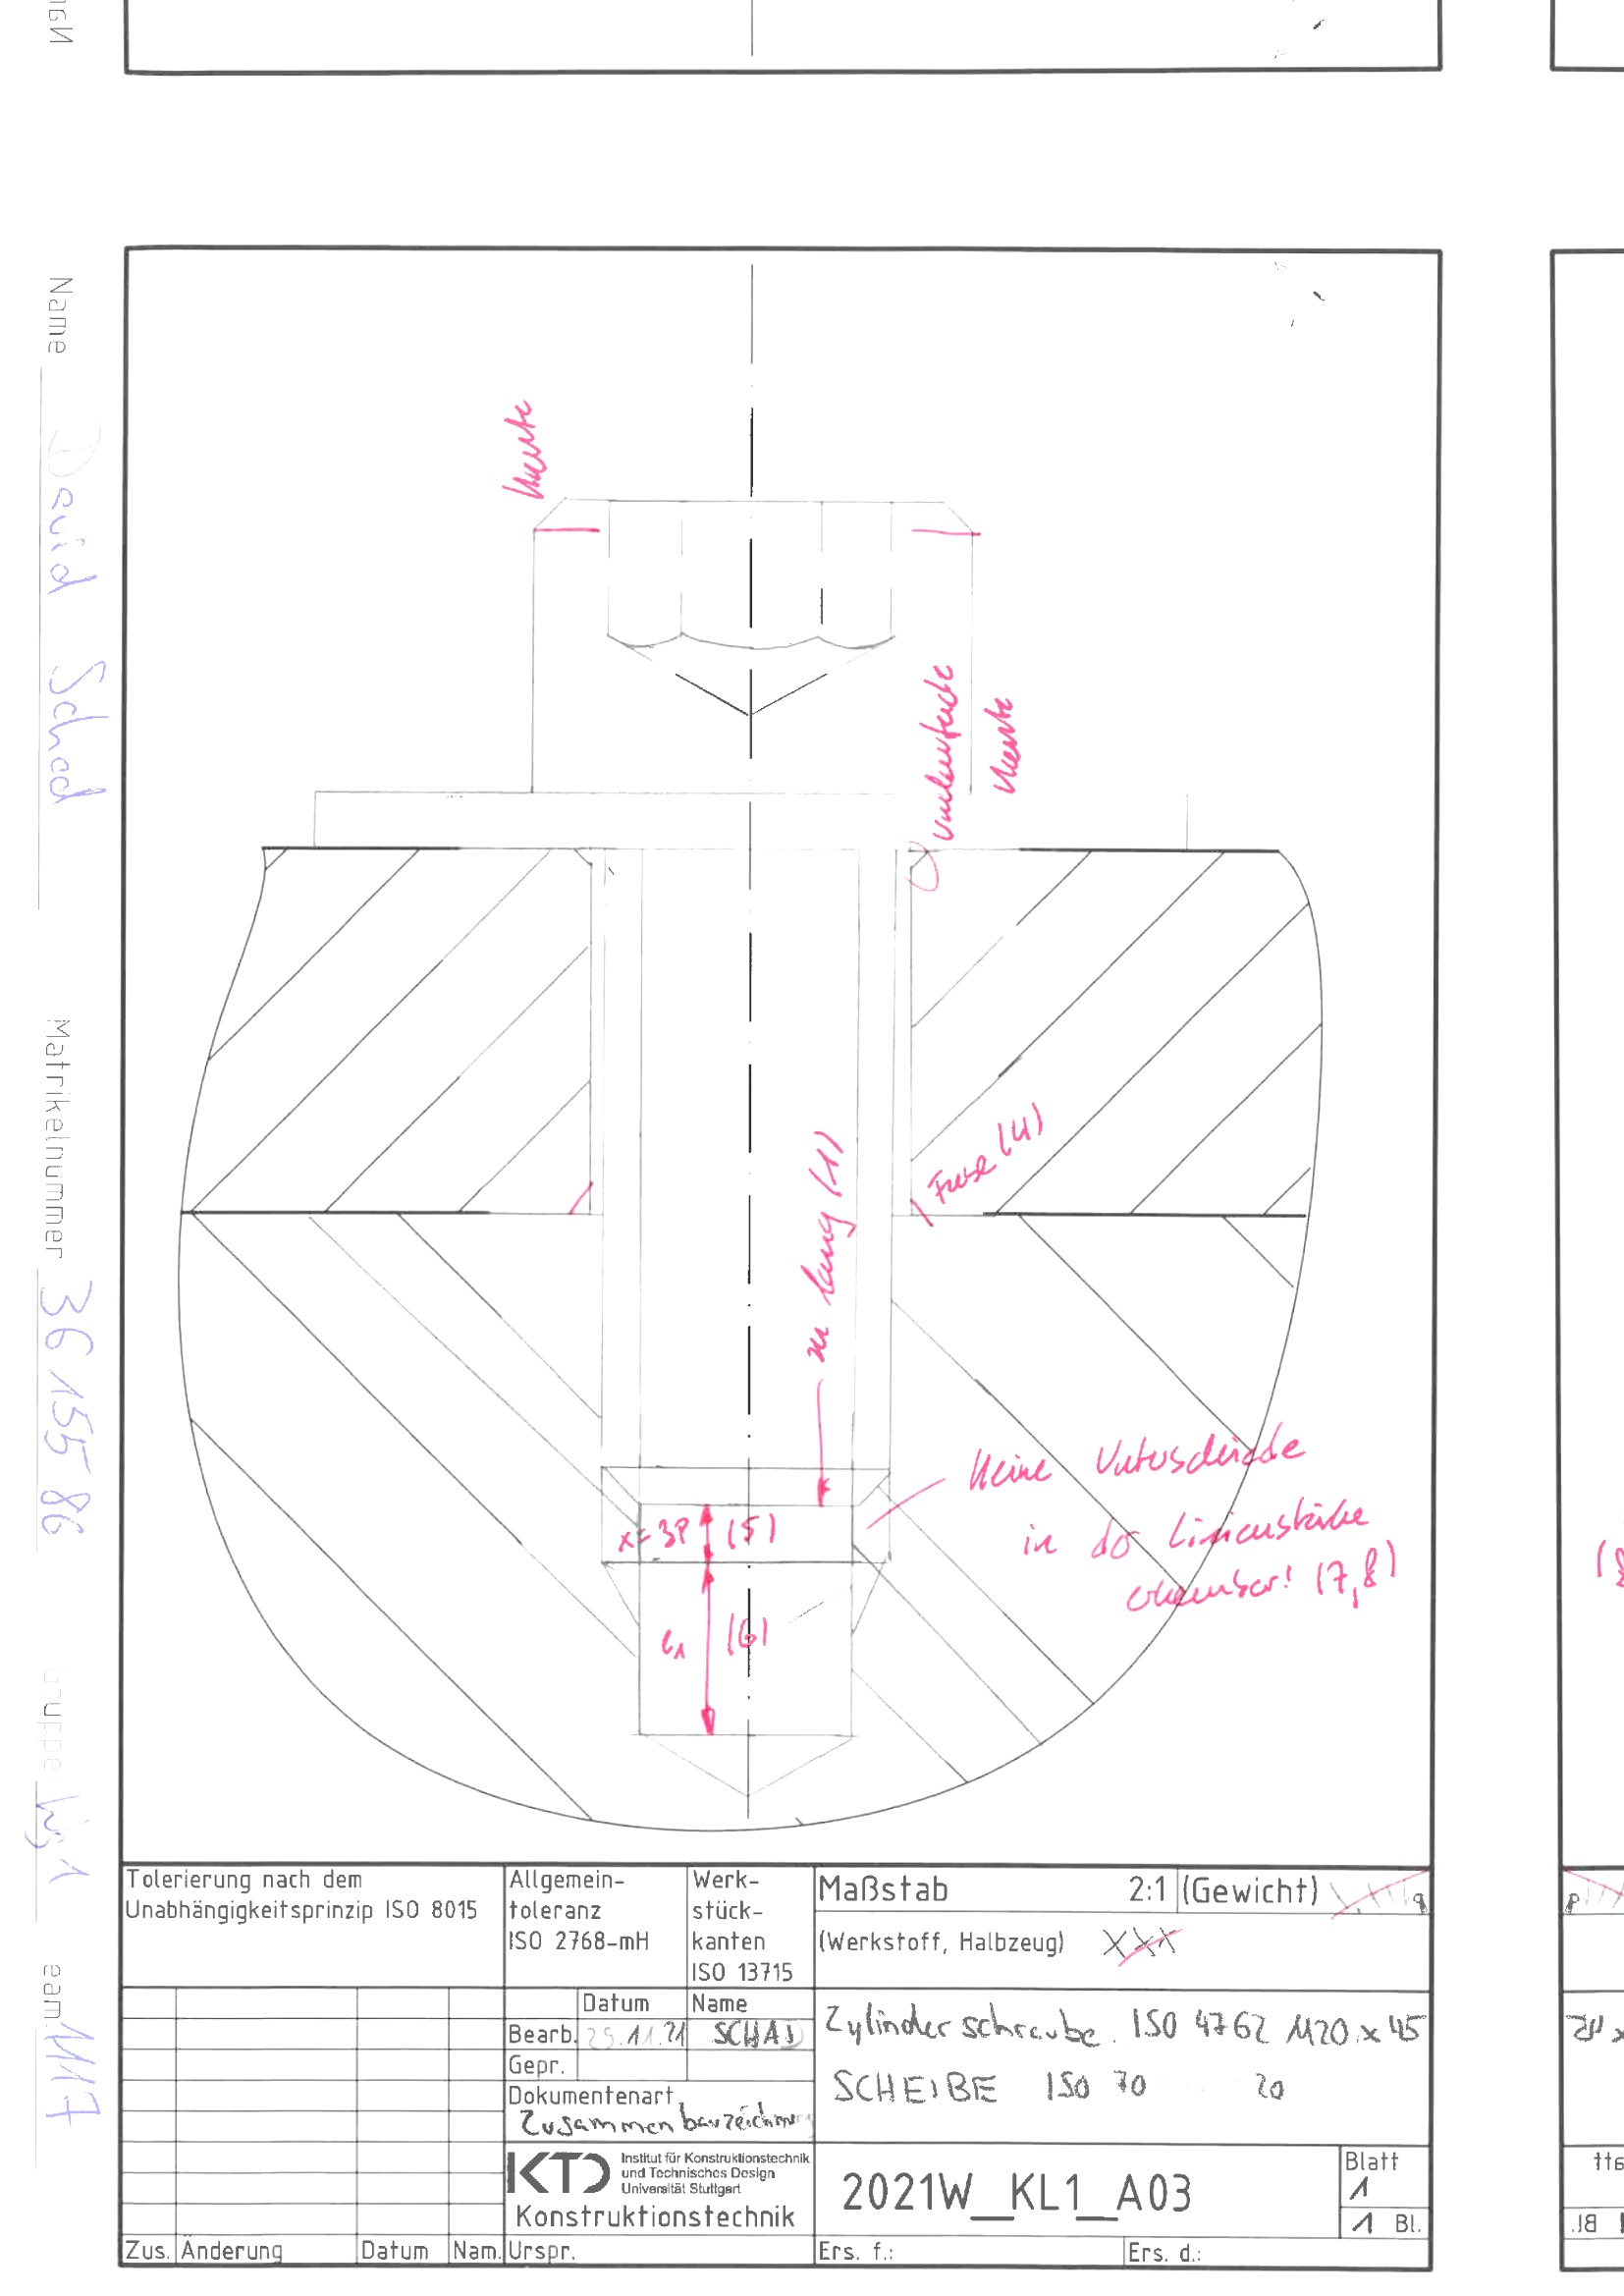 Name David Schad
Matrikelnummer 3615586
Gruppe
Team M17
Kante
umlaufende
Kante
Fase (4)
zu lang (1)
Keine Unterschiede
in der Linienstärke
erkennbar! (7,8)
x=3P (5)
(6)
Tolerierung nach dem
Unabhängigkeitsprinzip ISO 8015
Allgemein-
toleranz
ISO 2768-mH
Werk-
stück-
kanten
ISO 13715
Maßstab 2:1 (Gewicht)
(Werkstoff, Halbzeug) XXX
Datum Name
Bearb. 25.11.21 SCHAD
Gepr.
Dokumentenart
Zusammenbauzeichnung
Zylinderschraube ISO 4762 M20 x 45
SCHEIBE ISO 70 20
KTD Institut für Konstruktionstechnik
und Technisches Design
Universität Stuttgart
Konstruktionstechnik
2021W_KL1_A03
Blatt
1
1 Bl.
Zus. Änderung Datum Nam. Urspr. Ers. f.: Ers. d.: